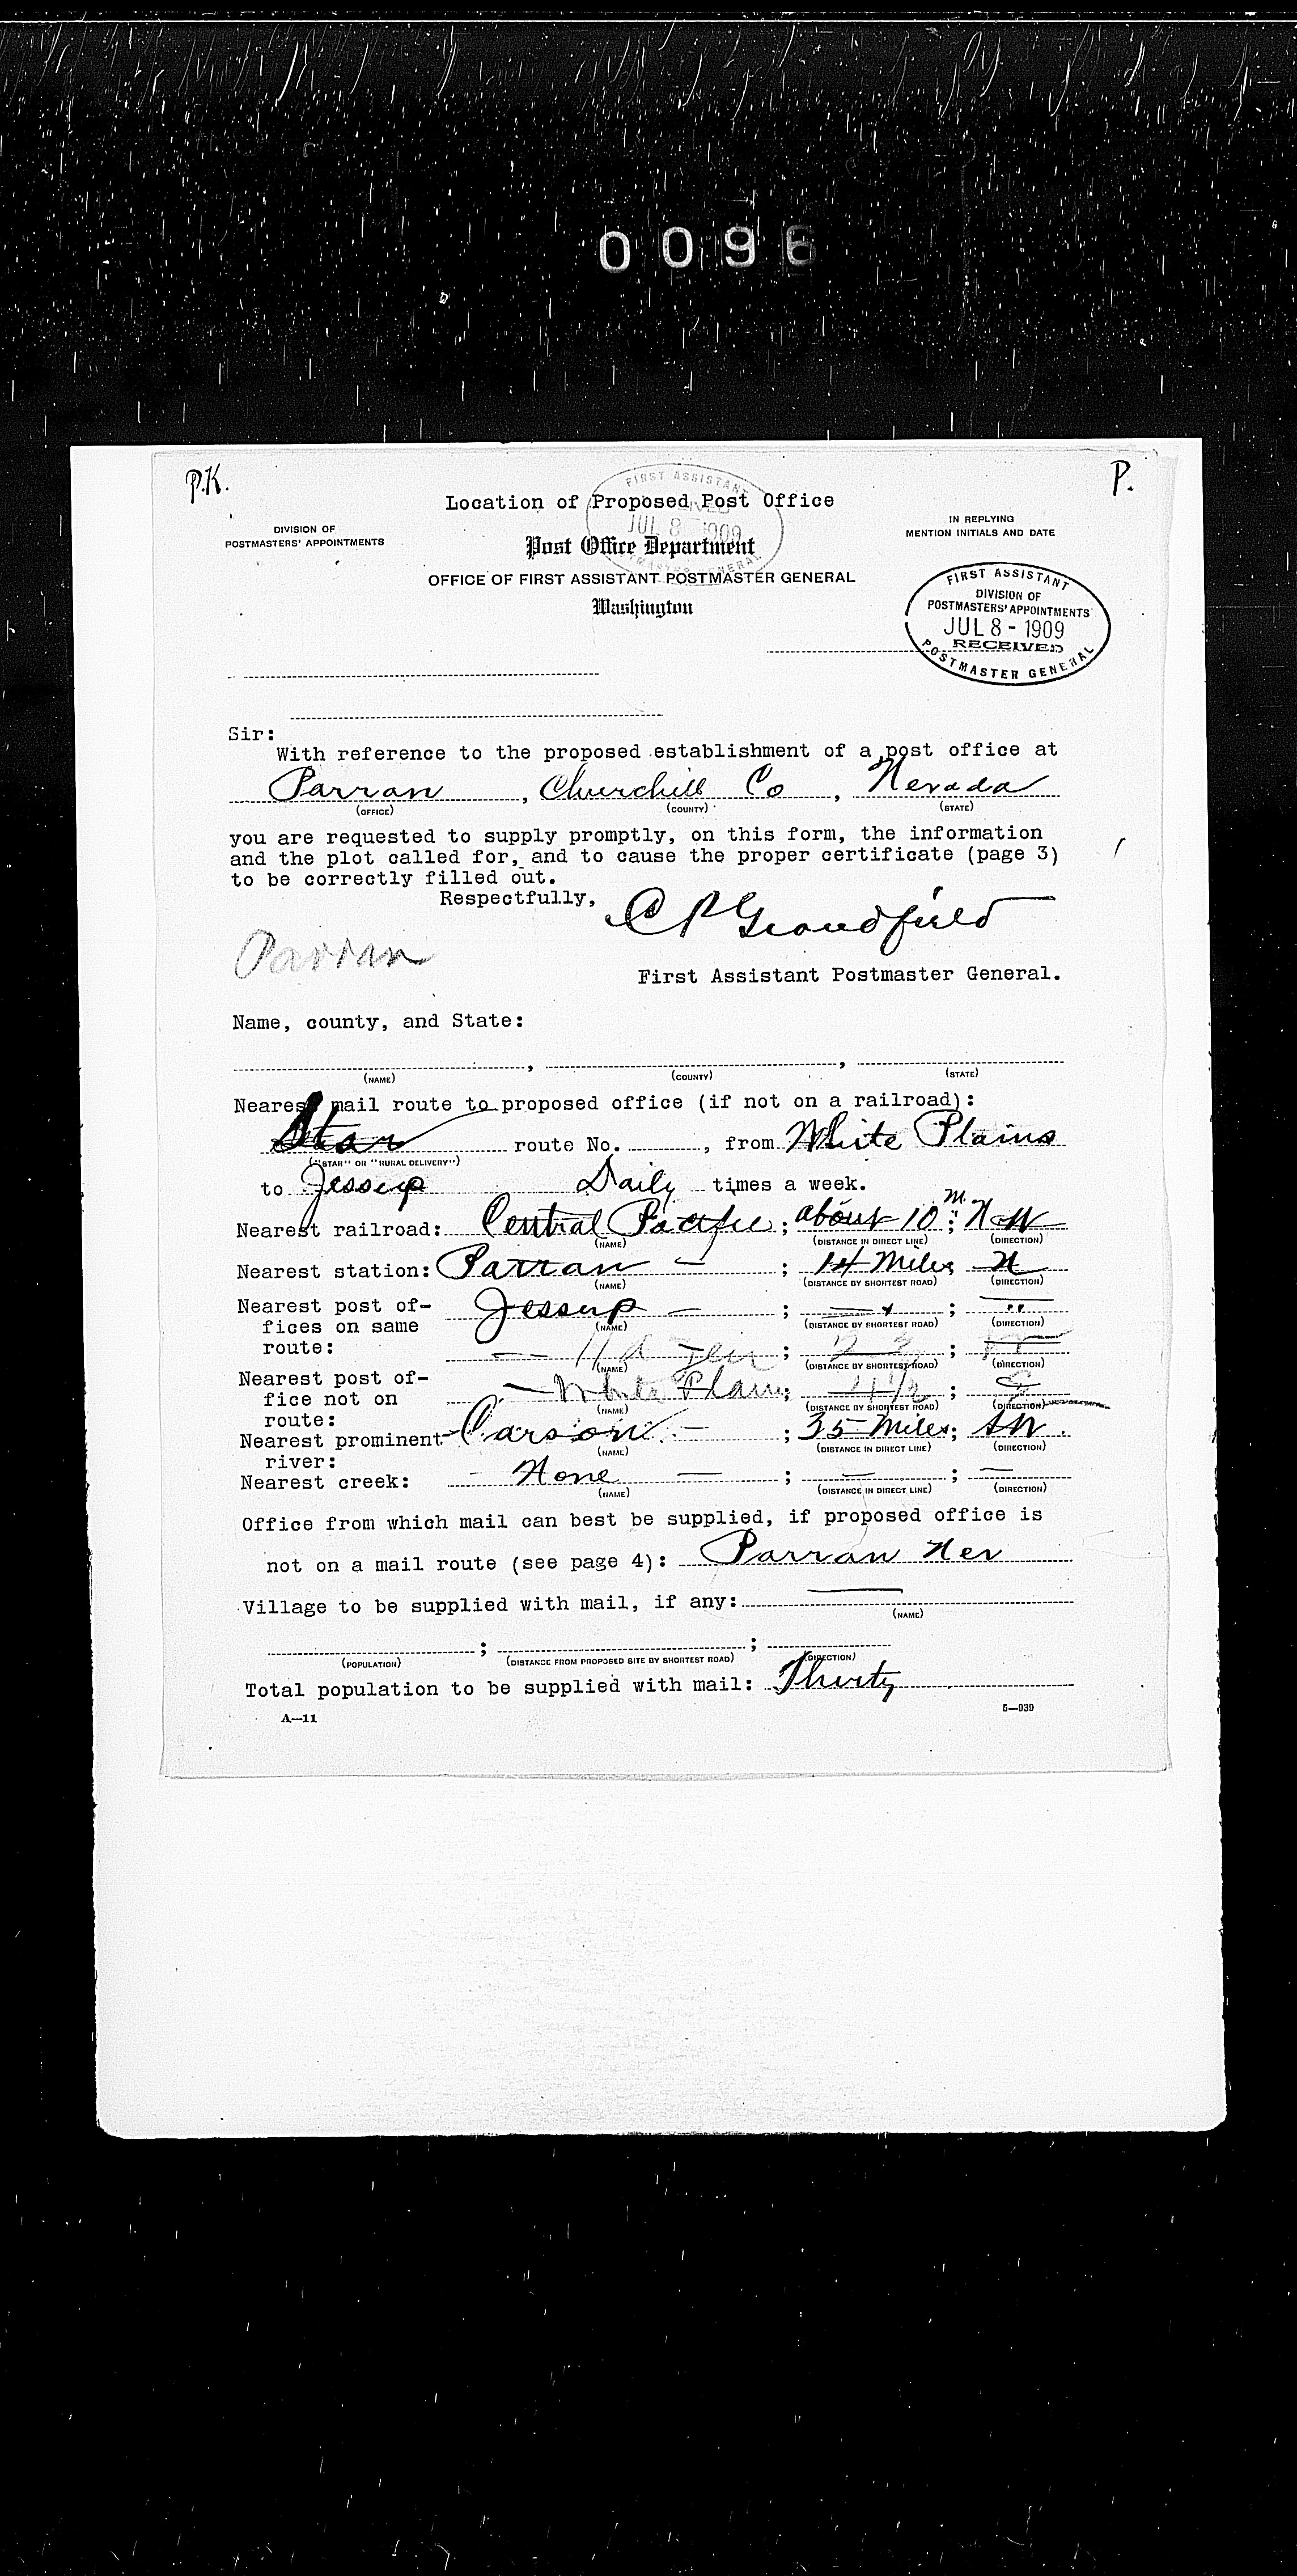 0096
P.K.
P.
Location of Proposed Post Office
FIRST ASSISTANT
JUL 8 1909
POSTMASTER GENERAL
DIVISION OF
POSTMASTERS' APPOINTMENTS
IN REPLYING
MENTION INITIALS AND DATE
Post Office Department
OFFICE OF FIRST ASSISTANT POSTMASTER GENERAL
Washington
FIRST ASSISTANT
DIVISION OF
POSTMASTERS' APPOINTMENTS
JUL 8 - 1909
RECEIVED
POSTMASTER GENERAL
Sir:
With reference to the proposed establishment of a post office at
Parran, Churchill Co, Nevada
(OFFICE) (COUNTY) (STATE)
you are requested to supply promptly, on this form, the information
and the plot called for, and to cause the proper certificate (page 3)
to be correctly filled out.
Respectfully,
C P Grandfield
Parran
First Assistant Postmaster General.
Name, county, and State:
(NAME) (COUNTY) (STATE)
Nearest mail route to proposed office (if not on a railroad):
Star route No. , from White Plains
("STAR" OR "RURAL DELIVERY")
to Jessup Daily times a week.
Nearest railroad: Central Pacific; about 10 M.; N W
(NAME) (DISTANCE IN DIRECT LINE) (DIRECTION)
Nearest station: Parran — ; 14 Miles N
(NAME) (DISTANCE BY SHORTEST ROAD) (DIRECTION)
Nearest post of-
fices on same
route:
Jessup — ; — ; "
(NAME) (DISTANCE BY SHORTEST ROAD) (DIRECTION)
— Hazen ; ;
(NAME) (DISTANCE BY SHORTEST ROAD) (DIRECTION)
Nearest post of-
fice not on
route:
— White Plains; 4½ ;
(NAME) (DISTANCE BY SHORTEST ROAD) (DIRECTION)
Nearest prominent
river:
Carson — ; 35 Miles; SW.
(NAME) (DISTANCE IN DIRECT LINE) (DIRECTION)
Nearest creek: - None — ; — ; —
(NAME) (DISTANCE IN DIRECT LINE) (DIRECTION)
Office from which mail can best be supplied, if proposed office is
not on a mail route (see page 4): Parran Nev
Village to be supplied with mail, if any: —
(NAME)
; ;
(POPULATION) (DISTANCE FROM PROPOSED SITE BY SHORTEST ROAD) (DIRECTION)
Total population to be supplied with mail: Thirty
A—11
5—939